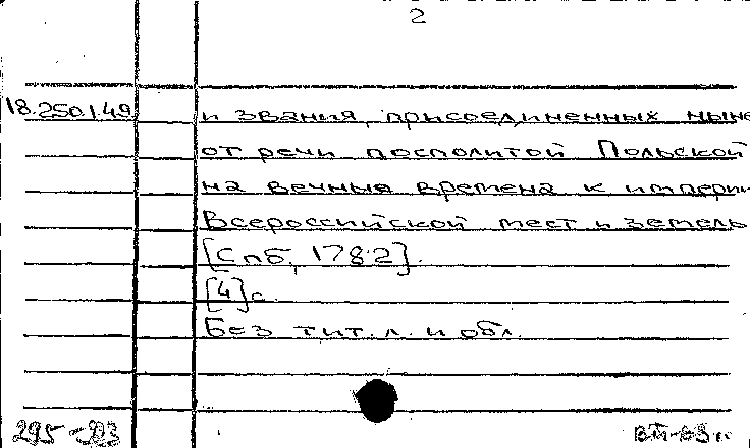 2
18.250.1.49
и звания, присоединенных ныне
от речи посполитой Польской
на вечные времена к империи
Всероссийской мест и земель
[Спб, 1782].
[4] с.
Без тит. л. и обл.
295-93